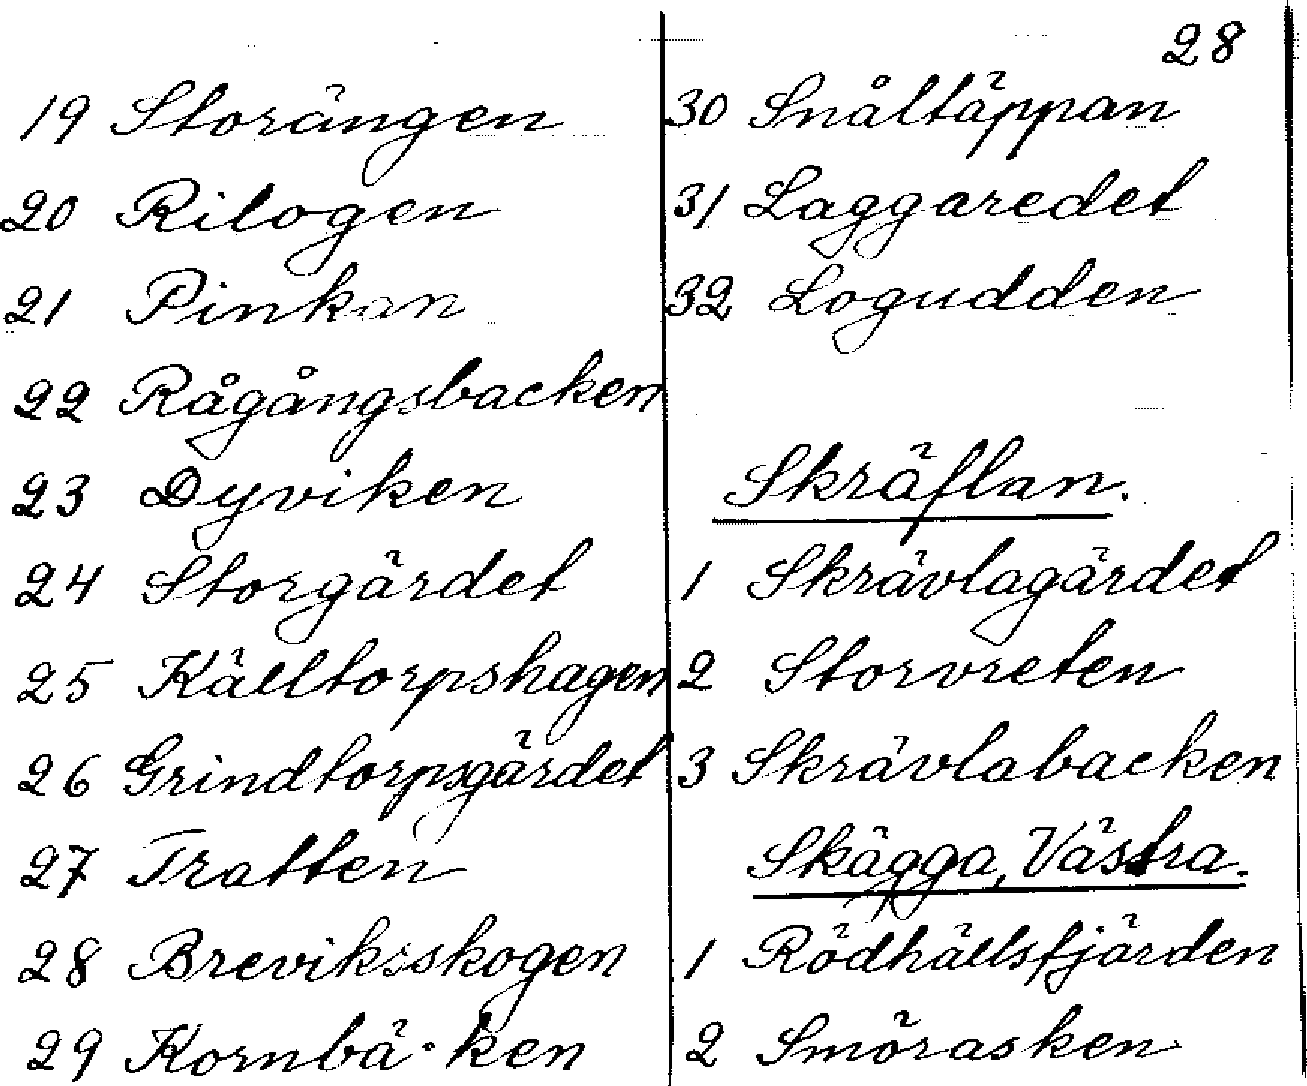 28
19 Storängen
20 Rilogen
21 Pinkan
22 Rågångsbacken
23 Dyviken
24 Storgärdet
25 Källtorpshagen
26 Grindtorpsgärdet
27 Tratten
28 Breviksskogen
29
30 Snåltäppan
31 Laggaredet
32 Logudden
Skräflan.
1 Skrävlagärdet
2 Storvreten
3 Skrävlabacken
Skägga, Västra.
1 Rödhällsfjärden
2 Smörasken